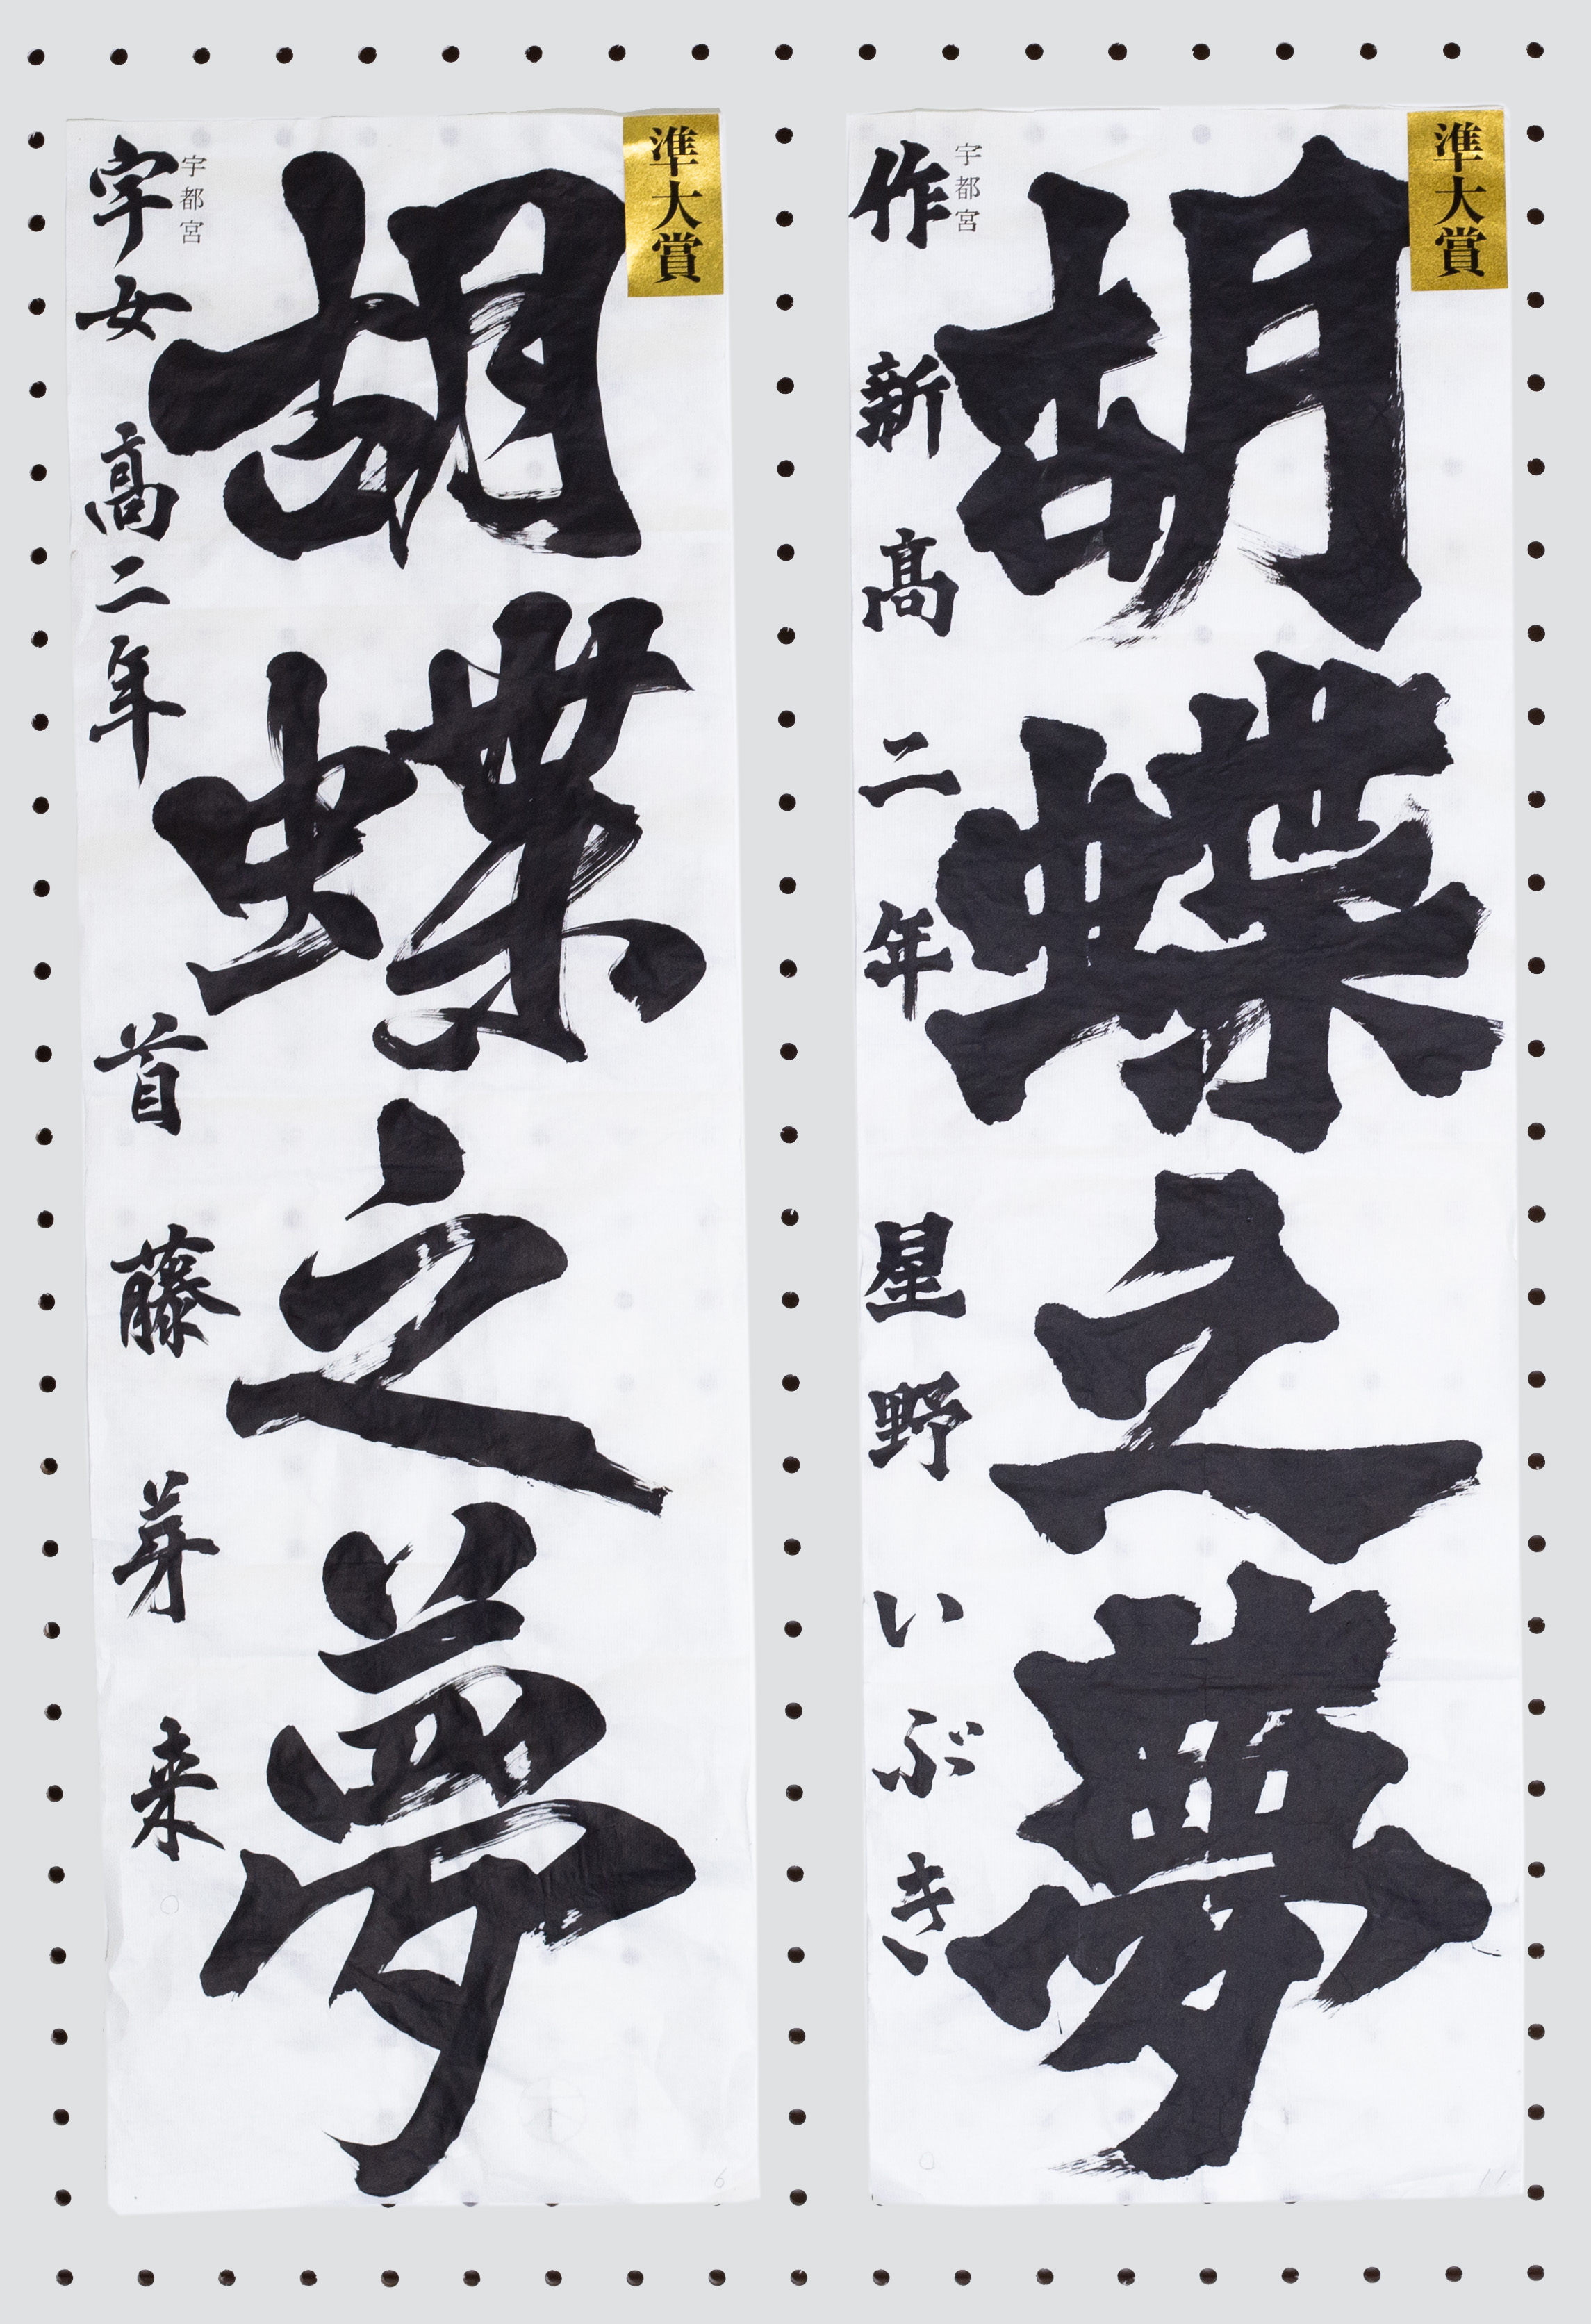 準大賞
胡蝶之夢
宇都宮
作新高二年 星野いぶき
準大賞
胡蝶之夢
宇都宮
宇女高二年 首藤芽来